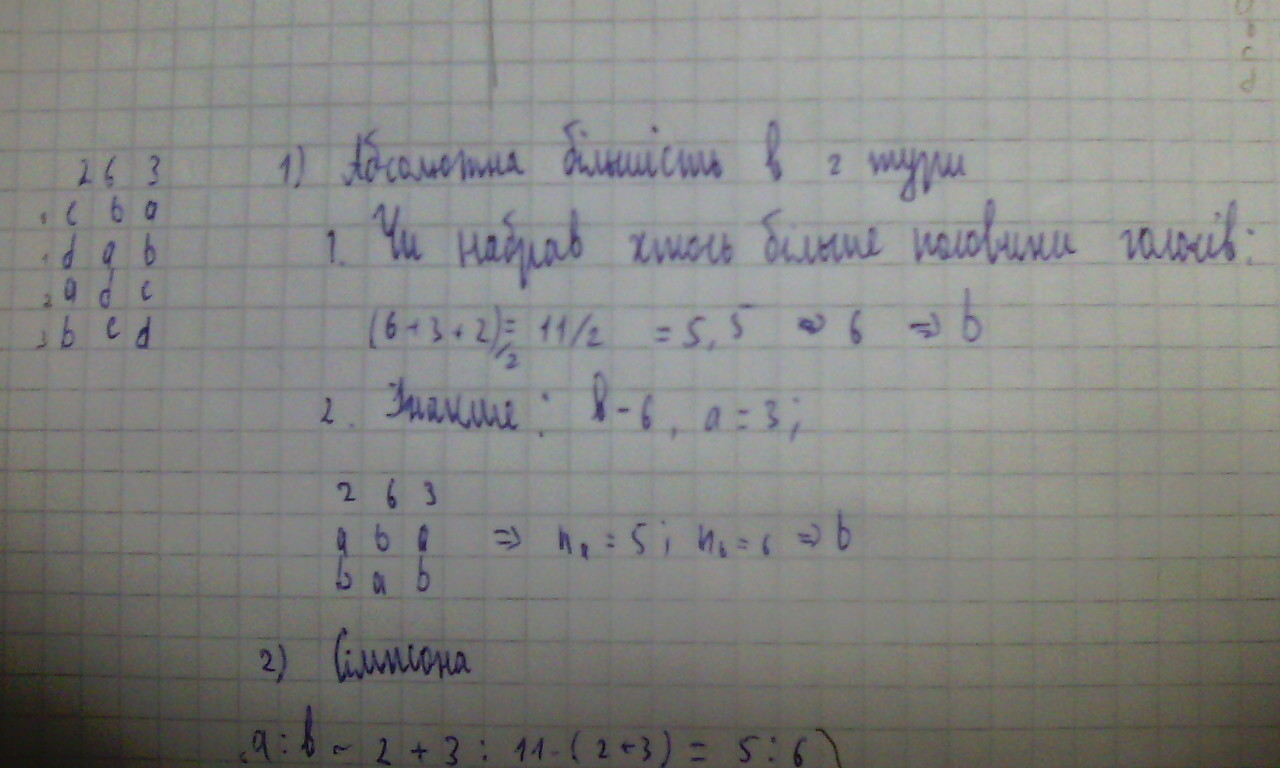 2 6 3
1 c b a
1 d a b
2 a d c
3 b c d
1) Абсолютна більшість в 2 тури
1. Чи набрав хтось більше половини голосів:
(6+3+2)/2 = 11/2 = 5,5 => 6 => b
2. Інакше: b - 6, a = 3;
2 6 3
a b a => na = 5; nb = 6 => b
b a b
2) Сімпсона
a : b ~ 2 + 3 : 11 - (2+3) = 5 : 6